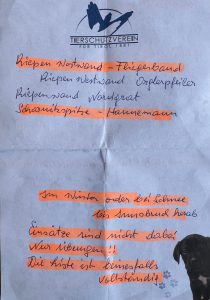 TIERSCHUTZVEREIN
FÜR TIROL 1881
Riepen Westwand - Fliegerband
Riepen Westwand Oxlerpfeiler
Riepenwand Nordgrat
Scharnitzspitze - Hannemann
Im Winter oder bei Schnee
bis Innsbruck herab
Einsätze sind nicht dabei
Nur Übungen!!
Die Liste ist keinesfalls
vollständig